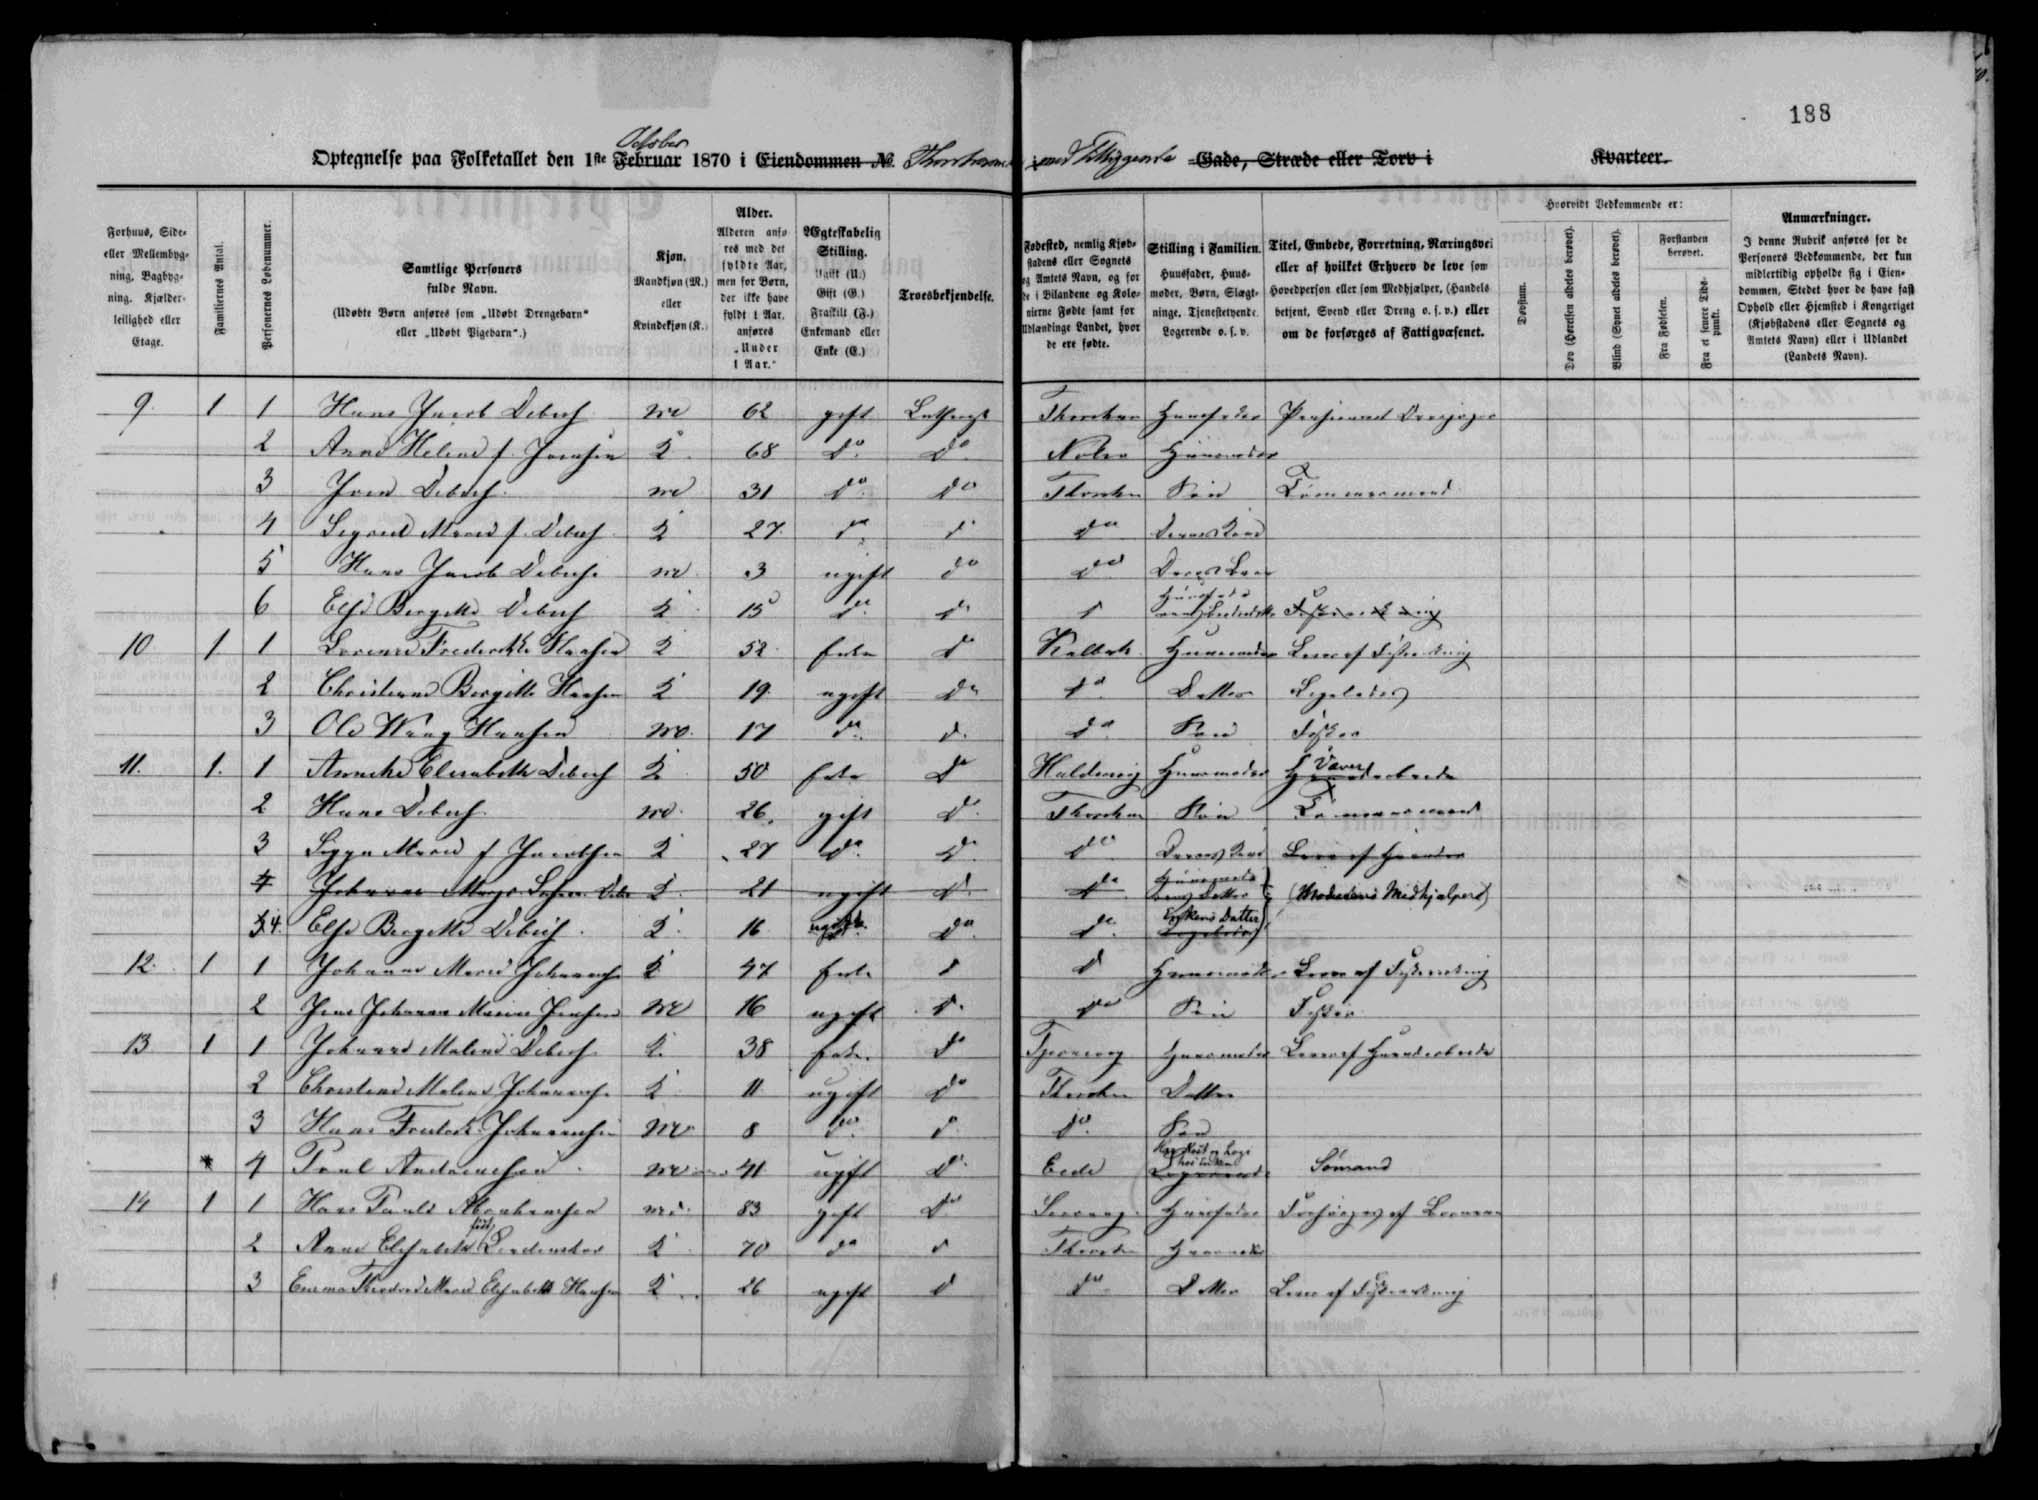 188
October
Optegnelse paa Folketallet den 1ste Februar 1870 i Eiendommen No. Thorshavn med Tilliggende Gade, Stræde eller Torv i Kvarteer.
Forhuus, Side- eller Mellembygning, Bagbygning, Kjælderleilighed eller Etage.
Familiernes Antal.
Personernes Løbenummer.
Samtlige Personers fulde Navn.
(Udøbte Børn anføres som „Udøbt Drengebarn“ eller „Udøbt Pigebarn“.)
Kjøn. Mandkjøn (M.) eller Kvindekjøn (K.)
Alder. Alderen anføres med det fyldte Aar, men for Børn, der ikke have fyldt 1 Aar, anføres „Under 1 Aar.“
Ægteskabelig Stilling. Ugift (U.) Gift (G.) Fraskilt (F.) Enkemand eller Enke (E.)
Troesbekjendelse.
Fødested, nemlig Kjøbstadens eller Sognets og Amtets Navn, og for de i Bilandene og Kolonierne Fødte samt for Udlandinge Landet, hvor de ere fødte.
Stilling i Familien. Huusfader, Huusmoder, Børn, Slægtninge, Tjenestetyende, Logerende o. s. v.
Titel, Embede, Forretning, Næringsvei eller af hvilket Erhverv de leve som Hovedperson eller som Medhjælper, (Handelsbetjent, Svend eller Dreng o. s. v.) eller om de forsørges af Fattigvæsenet.
Hvorvidt Vedkommende er:
Døvstum.
Døv (Hørelsen aldeles berøvet).
Blind (Synet aldeles berøvet).
Forstanden berøvet.
Fra Fødselen.
Fra et senere Tidspunkt.
Anmærkninger.
I denne Rubrik anføres for de Personers Vedkommende, der kun midlertidig opholde sig i Eiendommen, Stedet hvor de have fast Ophold eller Hjemsted i Kongeriget (Kjøbstadens eller Sognets og Amtets Navn) eller i Udlandet (Landets Navn).
9. 1 1 Hans Jacob Debesh M 62 gift Luthersk Thorshavn Huusfader Pensioneret
2 Anne Helene f. Joensen K. 68 do do Nolsø Huusmoder
3 Joen Debesh M 31 do do Thorshavn Søn Tømmermand
4 Sigrid Marie f. Debesh K 27. do d do Dennes Kone
5 Hans Jacob Debesh M 3 ugift do do Deres
6 Else Bergette Debesh K 15 do do d
10 1 1 Frederikke Hansen K 52 Enke do Kalbak Huusmoder Lever af
2 Christiane Bergitte Hansen K 19. ugift do do Datter Ligeledes
3 Ole Wang Hansen M. 17 do d. do Søn Fisker
11. 1. 1 Annike Elisabeth Debesh K 50 Enke do Haldervig Huusmoder Væver
2 Hans Debesh M. 26. gift do Thorshavn Søn Tømmermand
3 Marie f Jacobsen K 27 do do do Dennes Kone Lever af
4 Johanne K. 21 ugift do do Datter (Moderens Medhjælpere)
34. Else Bergette Debesh K. 16 ugift do do Enkens Datter
12. 1 1 Johanne Marie Johannesen K 47 Enke d d Huusmoder Lever af
2 Jens Johannes Jensen M 16 ugift do do Søn Fisker
13 1 1 Johanne Malene Debesh K. 38 Enke. do Huusmoder Lever af Haandarbeide
2 Christine Malene Johannesen K 11 ugift do Thorshavn Datter
3 Hans Frederik Johannesen M 8 do d do Søn
4 Poul M 41 ugift do Eide Har Kost og Logi hos Enken Sømand
14 1 1 Hans M. 83 gift do Huusfader Forsørges af
2 Anne Elisabeth født K 70 do d Thorshavn Huusmoder
3 Emma Marie Elisabeth Hansen K 26 ugift d do Datter Lever af